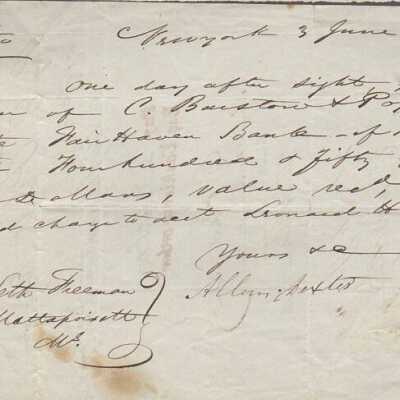 Newyork 3 June
One day after sight
of C. Barstow & Po
Fair Haven Bank of
Fourhundred & Fifty
Dollars, value recd,
d charge to acct Leonard H
Yours &c
Seth Freeman
Mattapoisett
Ms.